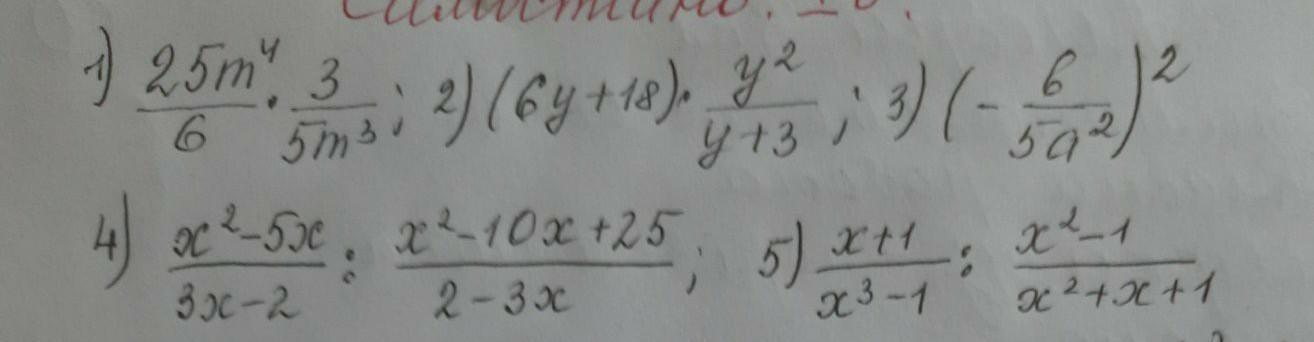 1) 25m⁴/6 · 3/5m³; 2) (6y+18)· y²/y+3; 3) (- 6/5a²)²
4) x²-5x/3x-2 : x²-10x+25/2-3x; 5) x+1/x³-1 : x²-1/x²+x+1